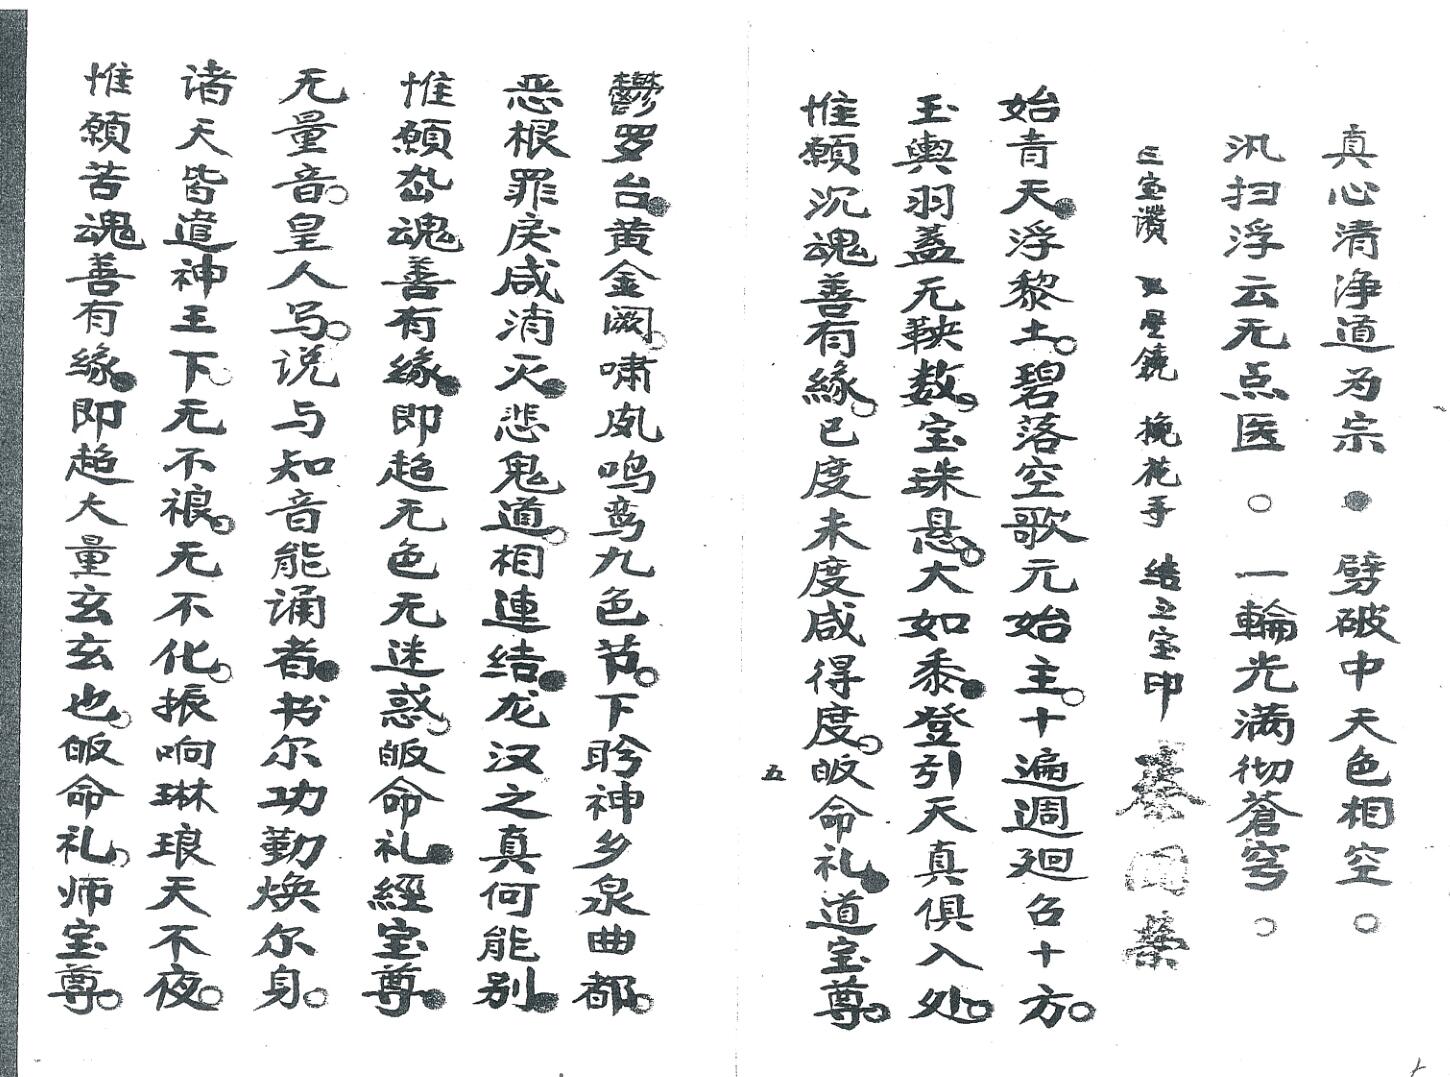 真心清净道为宗●劈破中天色相空○
汛扫浮云无点医○一輪光满彻蒼穹○
三宝讚 又里鐃 挽花手 结立宝印 秦同荣
始青天●浮黎土○碧落空歌元始主○十遍週廻召十方○
玉輿羽蓋无鞅数○宝珠悬○大如黍●登引天真俱入处○
惟願沉魂善有緣○已度未度咸得度○皈命礼●道宝尊○
五
鬱罗台●黄金阙○啸凮鸣鸾九色节○下盻神乡泉曲都○
恶根罪戾咸消灭●悲鬼道○相連结●龙汉之真何能别●
惟願幽魂善有緣●即超无色无迷惑○皈命礼●經宝尊●
无量音○皇人写○说与知音能诵者●书尔功勤焕尔身○
诸天皆遣神王下○无不禐○无不化○振响琳琅天不夜○
惟願苦魂善有緣●即超大量玄玄也○皈命礼○师宝尊○